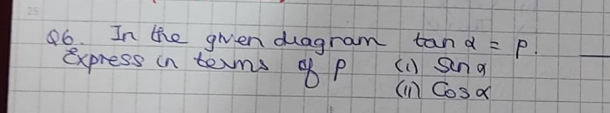 Q6. In the given diagram tan α = p.
Express in terms of p (i) Sin α
(ii) Cos α